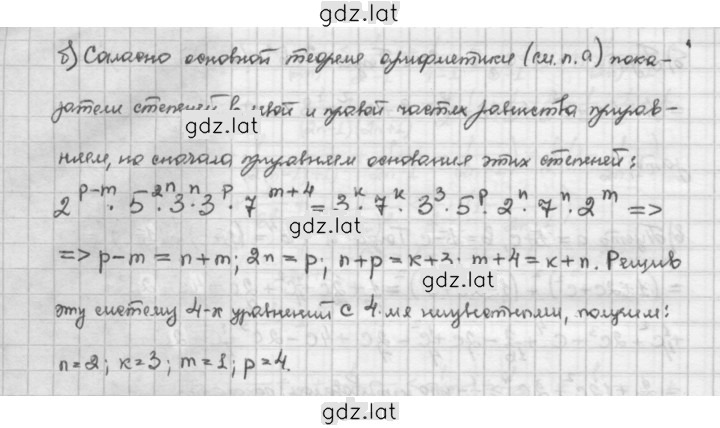 gdz.lat
б) Согласно основной теореме арифметики (см. п. а) пока-
затели степеней в левой и правой частях равенства прирав-
gdz.lat
няем, но сначала приравняем основания этих степеней:
2^{p-m} · 5^{2n} · 3^{n} · 3^{p} · 7^{m+4} = 3^{к} · 7^{к} · 3^{3} · 5^{p} · 2^{n} · 7^{n} · 2^{m} =>
=> p-m = n+m; 2n = p; n+p = к+3; m+4 = к+n. Решив
gdz.lat
эту систему 4-х уравнений с 4-мя неизвестными, получим:
n=2; к=3; m=1; p=4.
gdz.lat